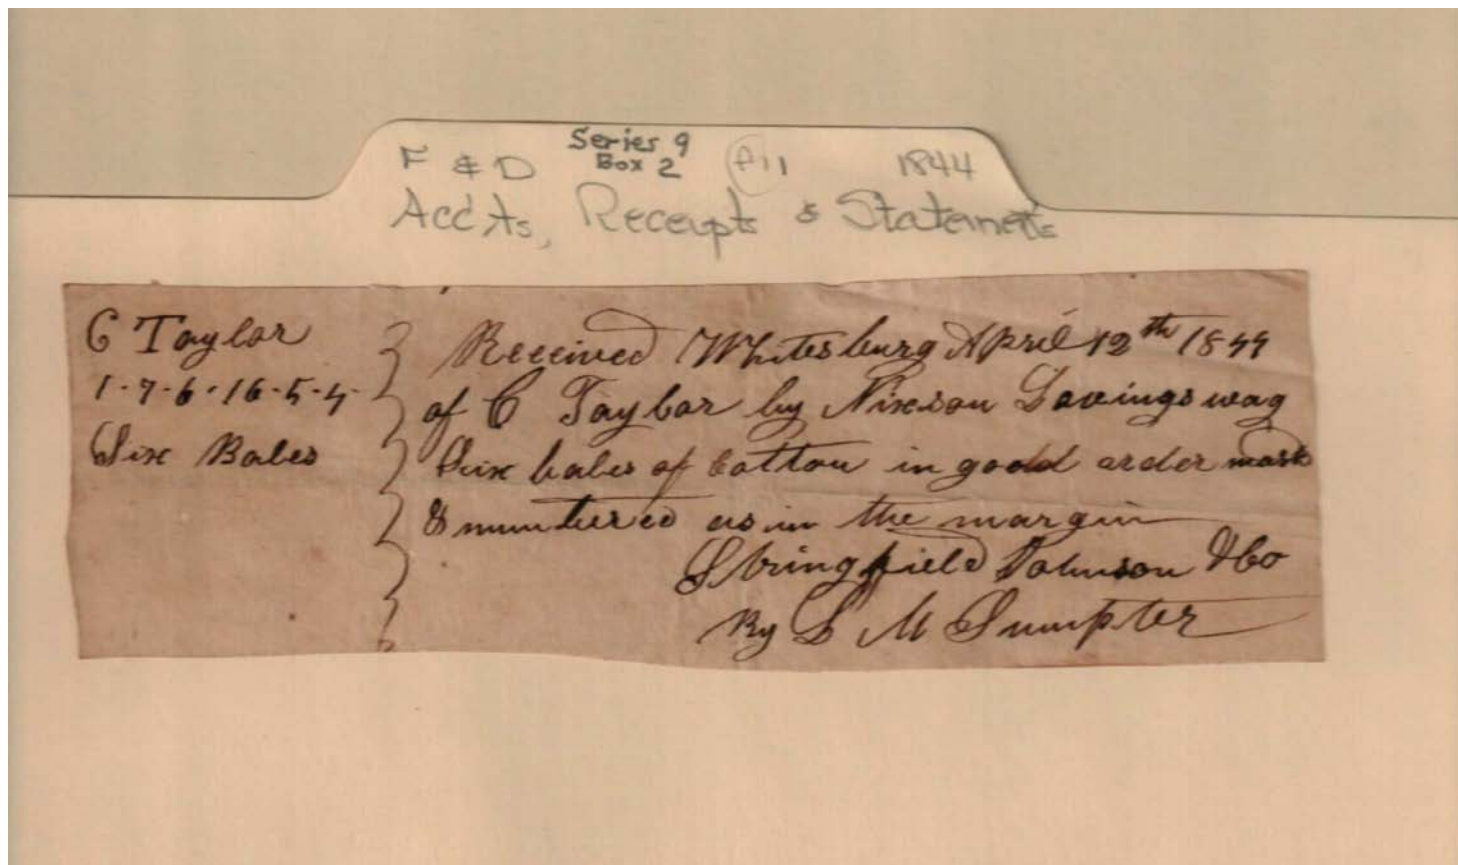 Series 9
F & D Box 2 1844
Acc'ts, Receipts & Statements
C Taylor
1-7-6-16-5-4-
Six Bales
Received Whitesburg April 12th 1844
of C Taylor by Nixson wag
Six bales of Cotton in good order mark
& numbered as in the margin
Stringfield Johnson & Co
By S M Sumpter